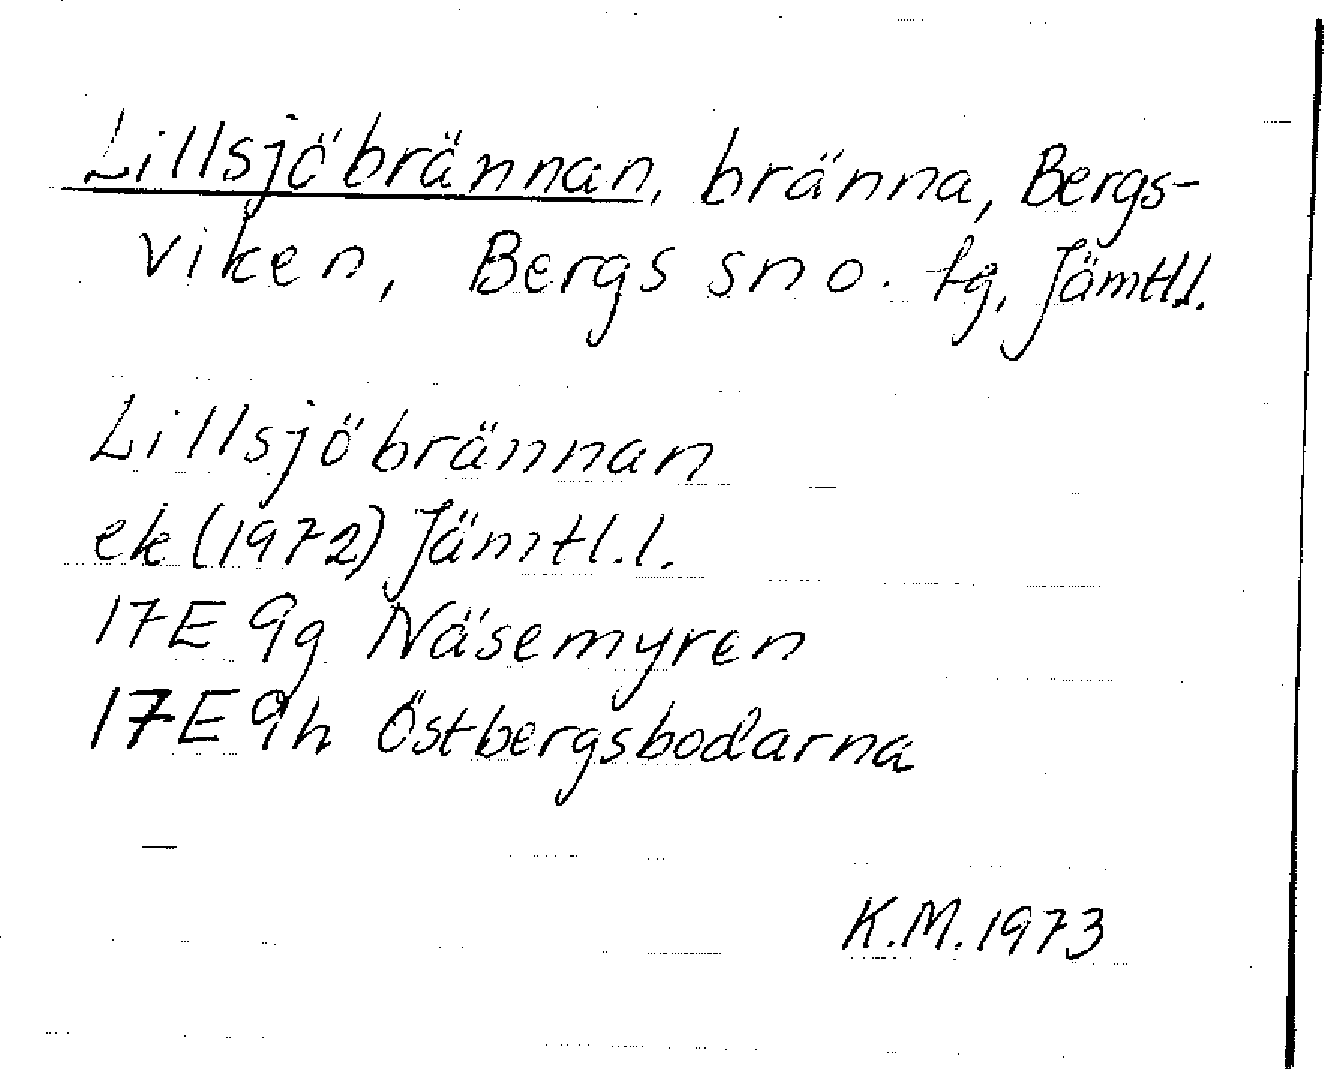 Lillsjöbrännan, bränna, Bergs-
viken, Bergs sn o. tg, Jämtl.l.
Lillsjöbrännan
ek (1972) Jämtl.l.
17E 9g Näsemyren
17E 9h Östbergsbodarna
K.M. 1973